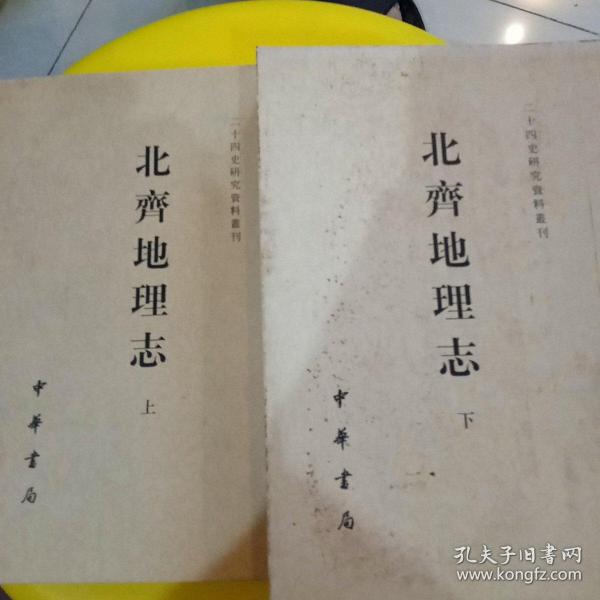 二十四史研究資料叢刊
北齊地理志
上
中華書局
二十四史研究資料叢刊
北齊地理志
下
中華書局
孔夫子旧書网
www.kongfz.com